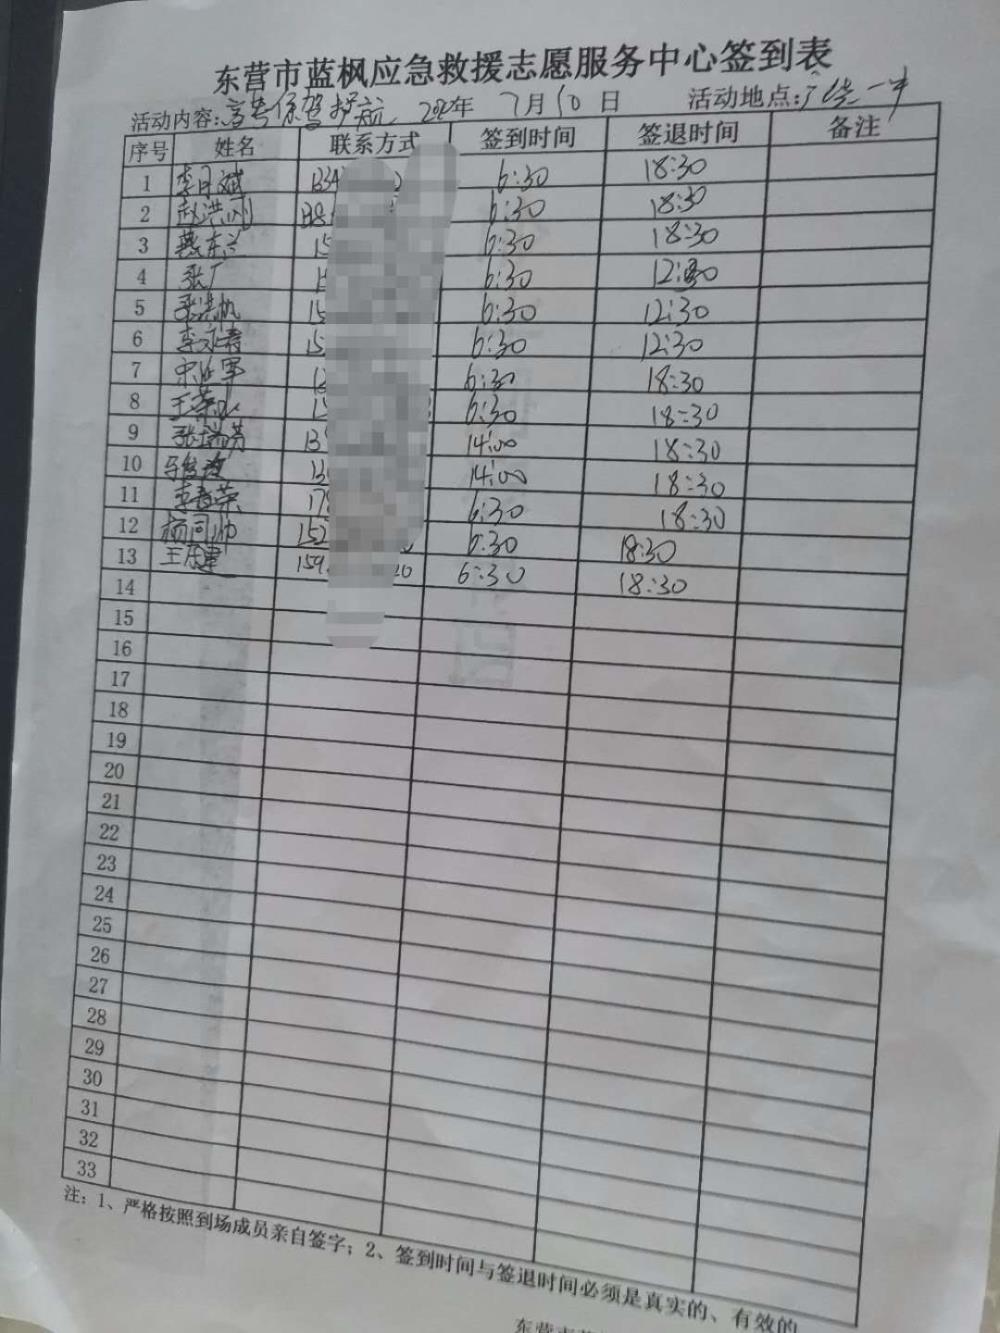 东营市蓝枫应急救援志愿服务中心签到表
活动内容:高考保驾护航 2020年 7月10日 活动地点:广饶一中
序号 姓名 联系方式 签到时间 签退时间 备注
1 李月斌 134 6:30 18:30
2 赵洪刚 138 6:30 18:30
3 燕东兰 15 6:30 18:30
4 张广 1 6:30 12:30
5 张洪帆 15 6:30 12:30
6 李永春 15 6:30 12:30
7 宋 军 13 6:30 18:30
8 王荣 15 6:30 18:30
9 张瑞芳 13 14:00 18:30
10 13 14:00 18:30
11 李春荣 178 6:30 18:30
12 杨同帅 152 6:30 18:30
13 王 建 159 20 6:30 18:30
14
15
16
17
18
19
20
21
22
23
24
25
26
27
28
29
30
31
32
33
注:1、严格按照到场成员亲自签字;2、签到时间与签退时间必须是真实的、有效的
东营市蓝